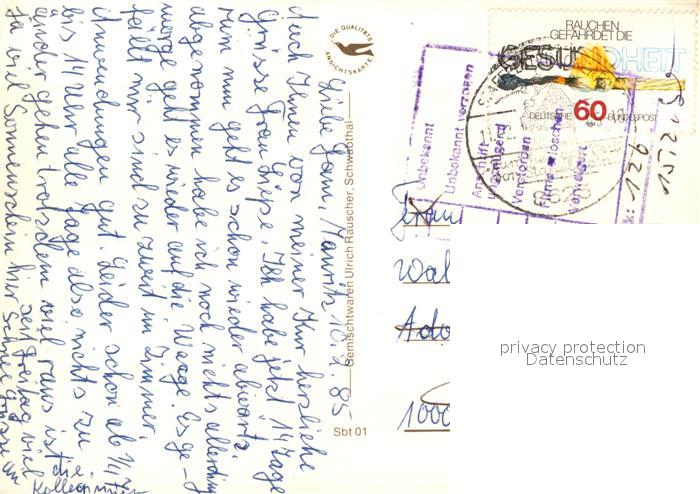 Liebe Fam. Mauritz 10.2.85
Auch Ihnen von meiner Kur herzliche
Grüsse Frau Liepe. Ich habe jetzt 14 Tage
rum nun geht es schon wieder abwärts.
abgenommen habe ich noch nichts allerdings
morge geht es wieder auf die Waage. Es ge-
fällt mir sind zu zweit im Zimmer.
Anwendungen gut. Leider schon ab
bis 14 Uhr alle Tage also nichts zu
ander gehen trotzdem viel raus ist die
ja viel Sonnenschein hier Schnee
seit Freitag viel
Grüsse an
DIE QUALITÄTS
ANSICHTSKARTE
Gemischtwaren Ulrich Rauscher, Schwabthal
Sbt 01
RAUCHEN
GEFÄHRDET DIE
GESUNDHEIT
60
DEUTSCHE BUNDESPOST
Unbekannt
Unbekannt verzogen
Anschrift
Verstorben
Firma erloschen
Frau
Wal
Ado
1000
privacy protection
Datenschutz